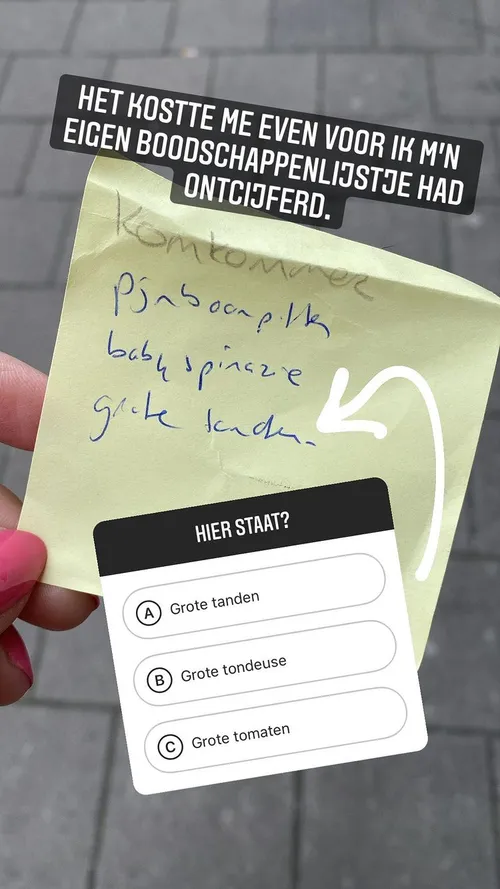 HET KOSTTE ME EVEN VOOR IK M'N
EIGEN BOODSCHAPPENLIJSTJE HAD
ONTCIJFERD.
Komkommer
pijnboompitten
baby spinazie
grote
HIER STAAT?
A Grote tanden
B Grote tondeuse
C Grote tomaten